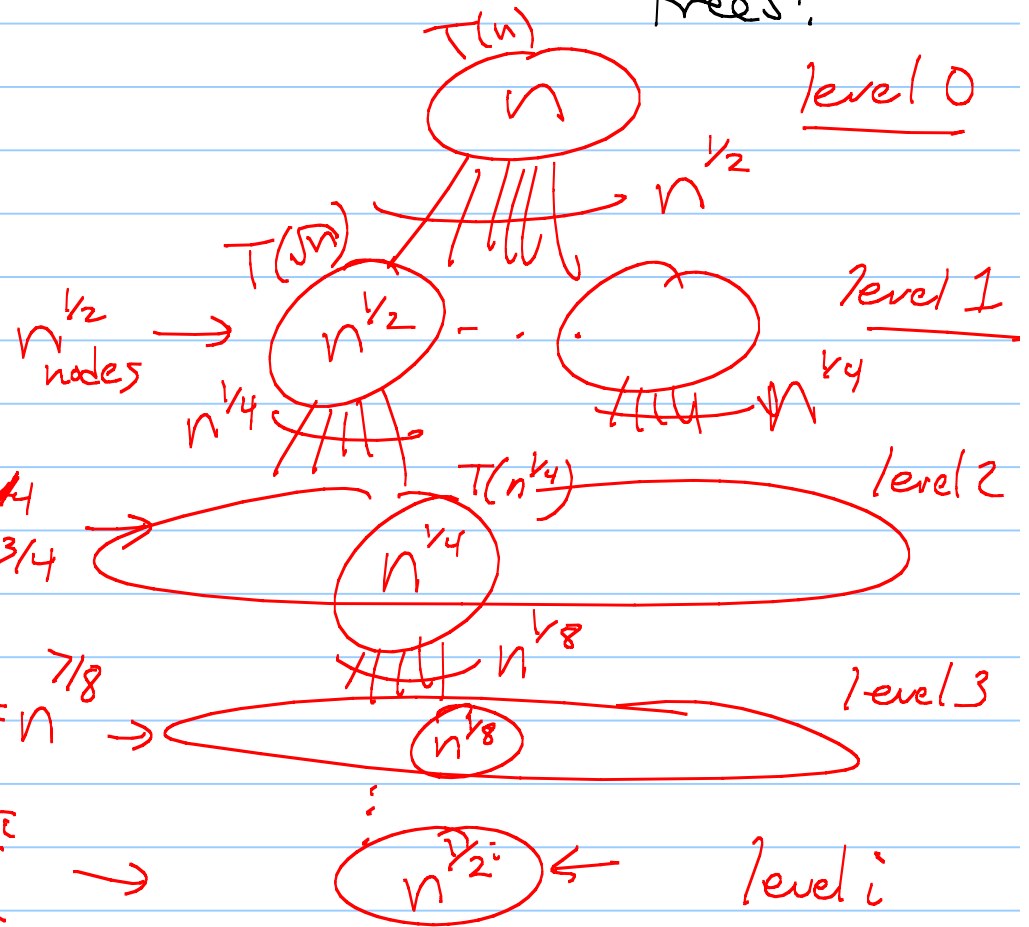 trees!
T(n)
n
level 0
n^{1/2}
T(√n)
n^{1/2}
level 1
n^{1/2} nodes → n^{1/2} - . . .
n^{1/4}
n^{1/4}
T(n^{1/4})
level 2
/4
3/4
n^{1/4}
n^{1/8}
7/8
level 3
= n →
n^{1/8}
⋮
→ n^{1/2^i} ← level i